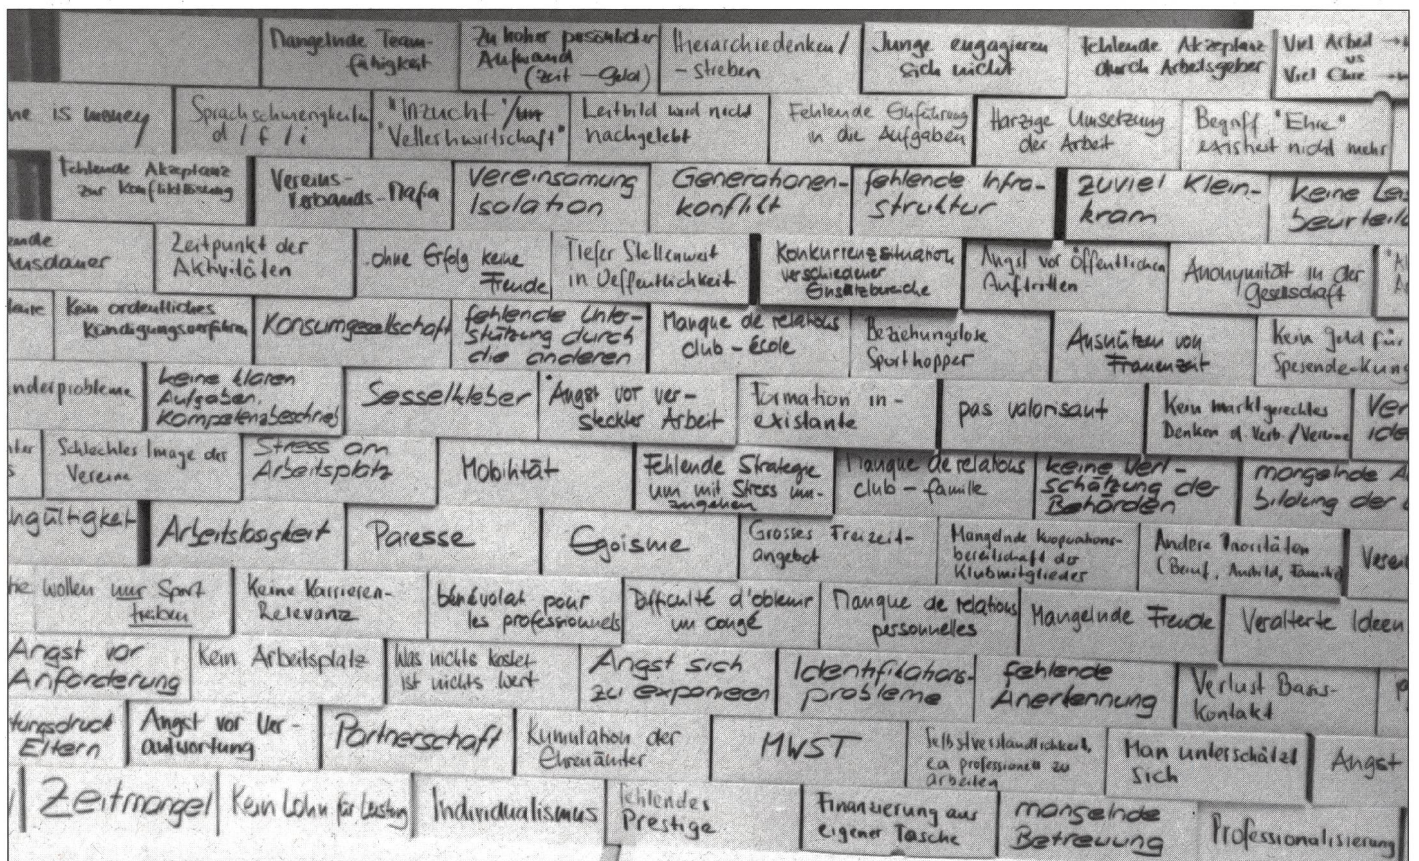 Mangelnde Team-
fähigkeit
Zu hoher persönlicher
Aufwand
(Zeit – Geld)
Hierarchiedenken /
– streben
Junge engagieren
sich nicht
Fehlende Akzeptanz
durch Arbeitgeber
Viel Arbeit →
vs
Viel Ehre →
is money
Sprachschwierigkeiten
d / f / i
"Inzucht" /
"Vetterliwirtschaft"
Leitbild wird nicht
nachgelebt
Fehlende Einführung
in die Aufgaben
Harzige Umsetzung
der Arbeit
Begriff "Ehre"
existiert nicht mehr
Fehlende Akzeptanz
zur Konfliktlösung
Vereins-
Verbands-Mafia
Vereinsamung
Isolation
Generationen-
konflikt
fehlende Infra-
struktur
zuviel Klein-
kram
keine
Ausdauer
Zeitpunkt der
Aktivitäten
ohne Erfolg keine
Freude
Tiefer Stellenwert
in Oeffentlichkeit
Konkurrenzsituation
verschiedener
Einsatzbereiche
Angst vor öffentlichen
Auftritten
Anonymität in der
Gesellschaft
Kein ordentliches
Kündigungsverfahren
Konsumgesellschaft
fehlende Unter-
stützung durch
die anderen
Manque de relations
club – école
Beziehungslose
Sporthopper
Ausnützen von
Frauenzeit
Kein Geld für
nderprobleme
keine klaren
Aufgaben,
Kompetenzbeschrieb
Sesselkleber
Angst vor ver-
steckter Arbeit
Formation in-
existante
pas valorisant
Kein marktgerechtes
Denken d. Verb. / Vereine
Schlechtes Image der
Vereine
Stress am
Arbeitsplatz
Mobilität
Fehlende Strategie
um mit Stress um-
zugehen
Manque de relations
club – famille
keine Wert-
schätzung der
Behörden
mangelnde
bildung der
ngültigkeit
Arbeitslosigkeit
Paresse
Egoisme
Grosses Freizeit-
angebot
Mangelnde Kooperations-
bereitschaft der
Klubmitglieder
Andere Prioritäten
(Beruf, Ausbild, Familie)
wollen nur Sport
treiben
Keine Karrieren-
Relevanz
bénévolat pour
les professionnels
Difficulté d'obtenir
un congé
Manque de relations
personnelles
Mangelnde Freude
Veralterte Ideen
Angst vor
Anforderung
Kein Arbeitsplatz
Was nichts kostet
ist nichts wert
Angst sich
zu exponieren
Identifikations-
probleme
fehlende
Anerkennung
Verlust Basis-
kontakt
tungsdruck
Eltern
Angst vor Ver-
antwortung
Partnerschaft
Kumulation der
Ehrenämter
MWST
Selbstverständlichkeit,
professionell zu
arbeiten
Man unterschätzt
sich
Angst
Zeitmangel
Kein Lohn für Leistung
Individualismus
fehlendes
Prestige
Finanzierung aus
eigener Tasche
mangelnde
Betreuung
Professionalisierung